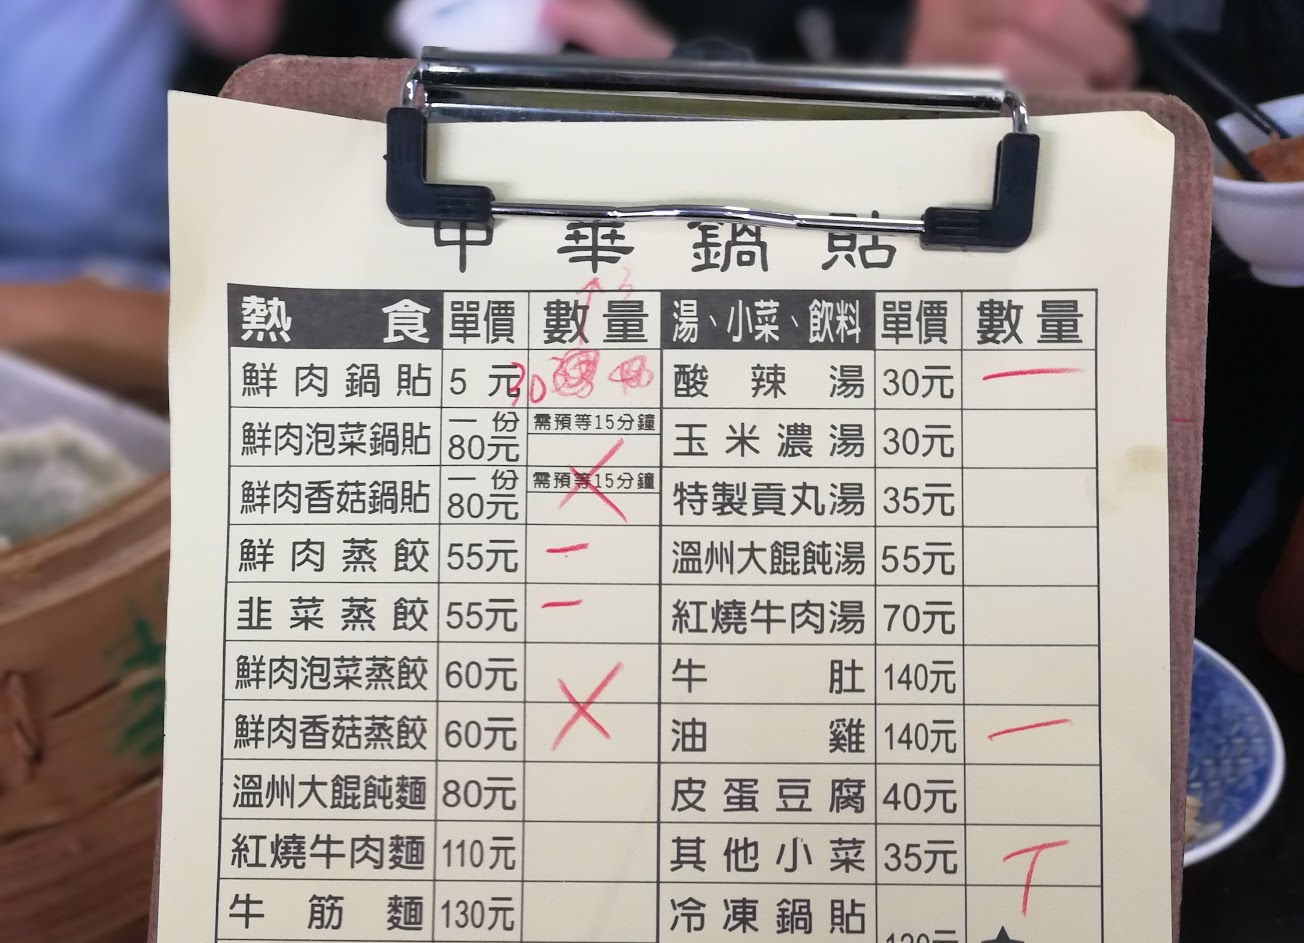 中華鍋貼
熱食 單價 數量 湯、小菜、飲料 單價 數量
鮮肉鍋貼 5元 30 酸辣湯 30元 一
鮮肉泡菜鍋貼 一份80元 需預等15分鐘 玉米濃湯 30元
鮮肉香菇鍋貼 一份80元 需預等15分鐘 特製貢丸湯 35元
鮮肉蒸餃 55元 一 溫州大餛飩湯 55元
韭菜蒸餃 55元 一 紅燒牛肉湯 70元
鮮肉泡菜蒸餃 60元 牛肚 140元
鮮肉香菇蒸餃 60元 油雞 140元 一
溫州大餛飩麵 80元 皮蛋豆腐 40元
紅燒牛肉麵 110元 其他小菜 35元 T
牛筋麵 130元 冷凍鍋貼